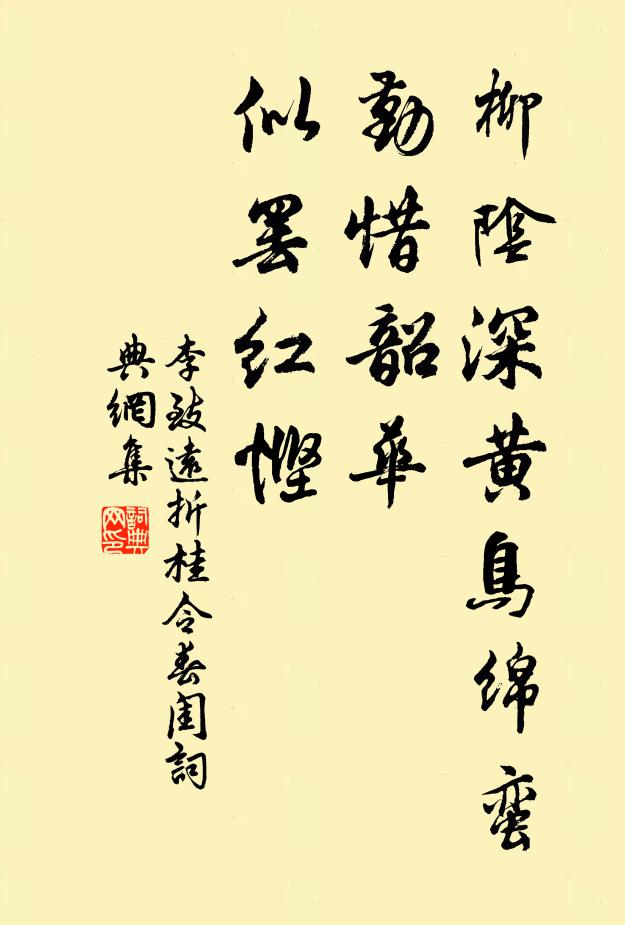 柳陰深黄鳥綿蠻
勤惜韶華
似罢紅慳
李致遠折桂令春閨詞
典網集
詞典
网印